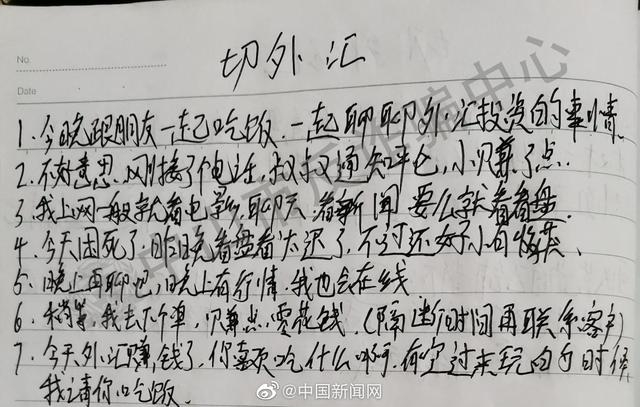 No.
Date
切外汇
1.今晚跟朋友一起吃饭.一起聊聊外汇投资的事情.
2.不好意思.刚接了个电话.叔叔通知平仓,小赚了点.
3.我上网一般就看电影,聊天.看新闻 要么就看看盘.
4.今天困死了.昨晚看盘看太迟了.不过还好小有收获.
5.晚上再聊吧,晚上有行情.我也会在线.
6.稍等,我去下个单,只赚点零花钱.(隔断时间再联系客户)
7.今天外汇赚钱了,你喜欢吃什么啊.有空过来玩的的时候
我请你吃饭.
@中国新闻网